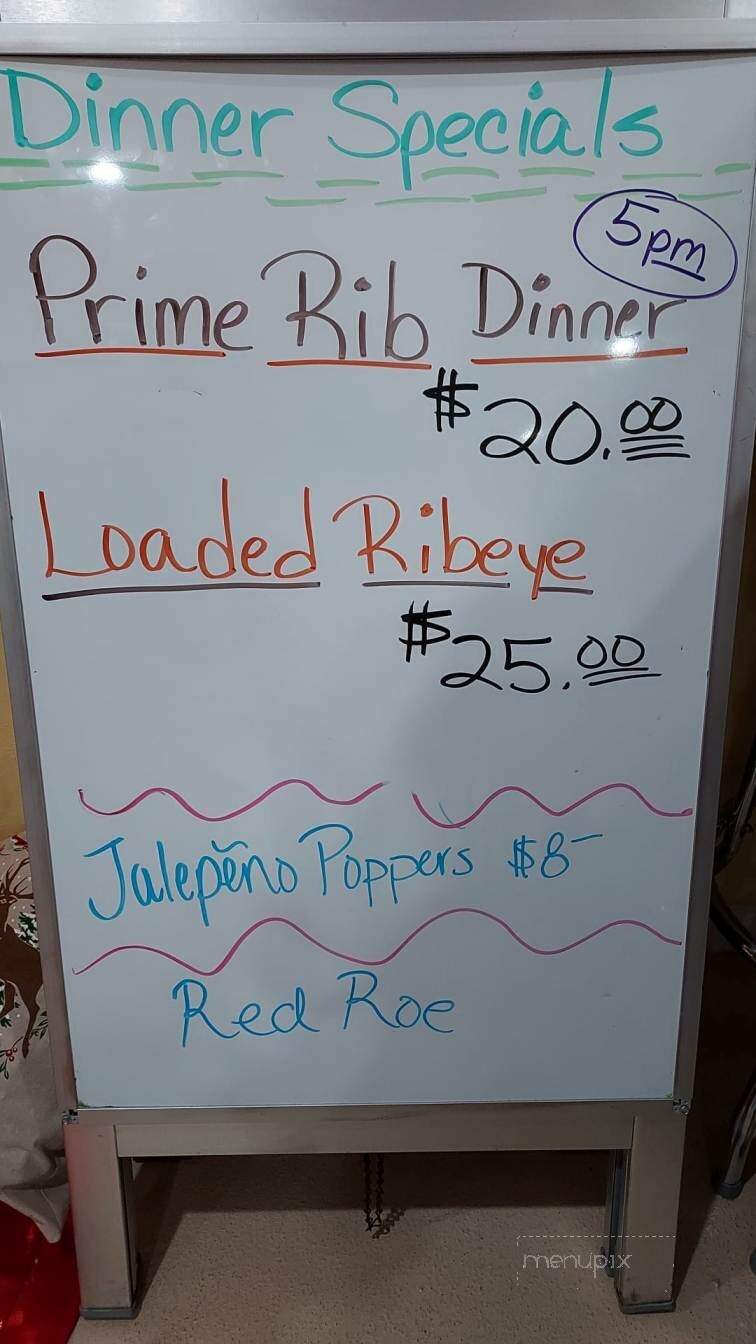 Dinner Specials
5pm
Prime Rib Dinner
$20.00
Loaded Ribeye
$25.00
Jalepěno Poppers $8-
Red Roe
menupix